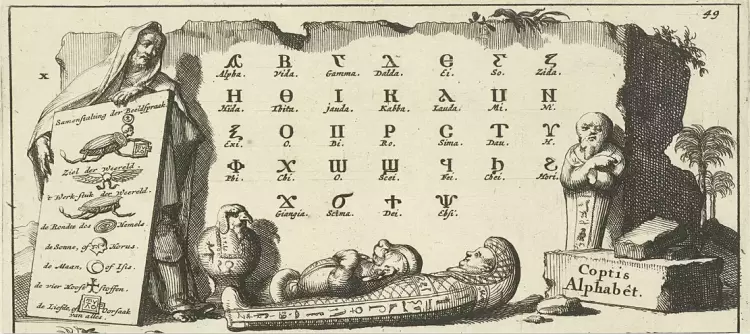 49
x
Samenstalling der Beeldspraak
Ziel der Weereld.
't Werk-stuk der Weereld.
de Rondte des Hemels.
de Sonne, of Horus.
de Maan, of Isis.
de vier Hooft stoffen.
de Liefde, of Oorsaak
van alles.
Ⲁ Ⲃ Ⲅ Ⲇ Ⲉ Ⲋ Ⲍ
Alpha. Vida. Gamma. Dalda. Ei. So. Zida.
Ⲏ Ⲑ Ⲓ Ⲕ Ⲗ Ⲙ Ⲛ
Hida. Thita. Jauda. Kabba. Lauda. Mi. Ni.
Ⲝ Ⲟ Ⲡ Ⲣ Ⲥ Ⲧ Ⲩ
Exi. O. Bi. Ro. Sima. Dau. H.
Ⲫ Ⲭ Ⲱ Ϣ Ϥ Ϧ Ϩ
Phi. Chi. O. Scei. Fei. Chei. Hori.
Ϫ Ϭ Ϯ Ⲯ
Giangia. Scima. Dei. Ebsi.
Coptis
Alphabét.